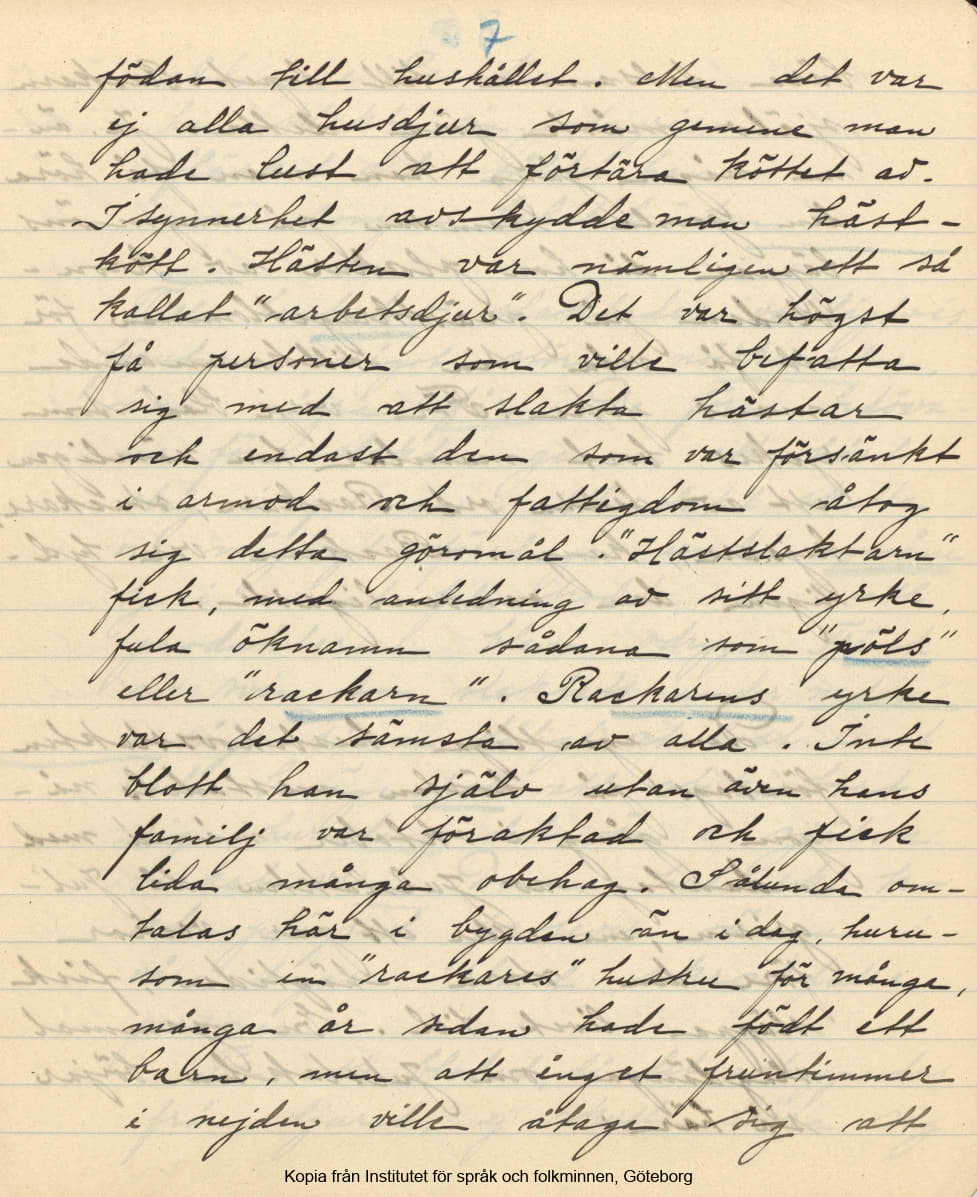 7
födan till hushållet. Men det var
ej alla husdjur som gemene man
hade lust att förtära köttet av.
I synnerhet avskydde man häst-
kött. Hästen var nämligen ett så
kallat "arbetsdjur". Det var högst
få personer som ville befatta
sig med att slakta hästar
och endast den som var försänkt
i armod och fattigdom åtog
sig detta göromål. "Hästslaktarn"
fick, med anledning av sitt yrke,
fula öknamn sådana som "pöls"
eller "rackarn". Rackarens yrke
var det sämsta av alla. Inte
blott han själv utan även hans
familj var föraktad och fick
lida många obehag. Sålunda om-
talas här i bygden än i dag, huru-
som en "rackares" hustru för många,
många år sedan hade födt ett
barn, men att inget fruntimmer
i nejden ville åtaga sig att
Kopia från Institutet för språk och folkminnen, Göteborg